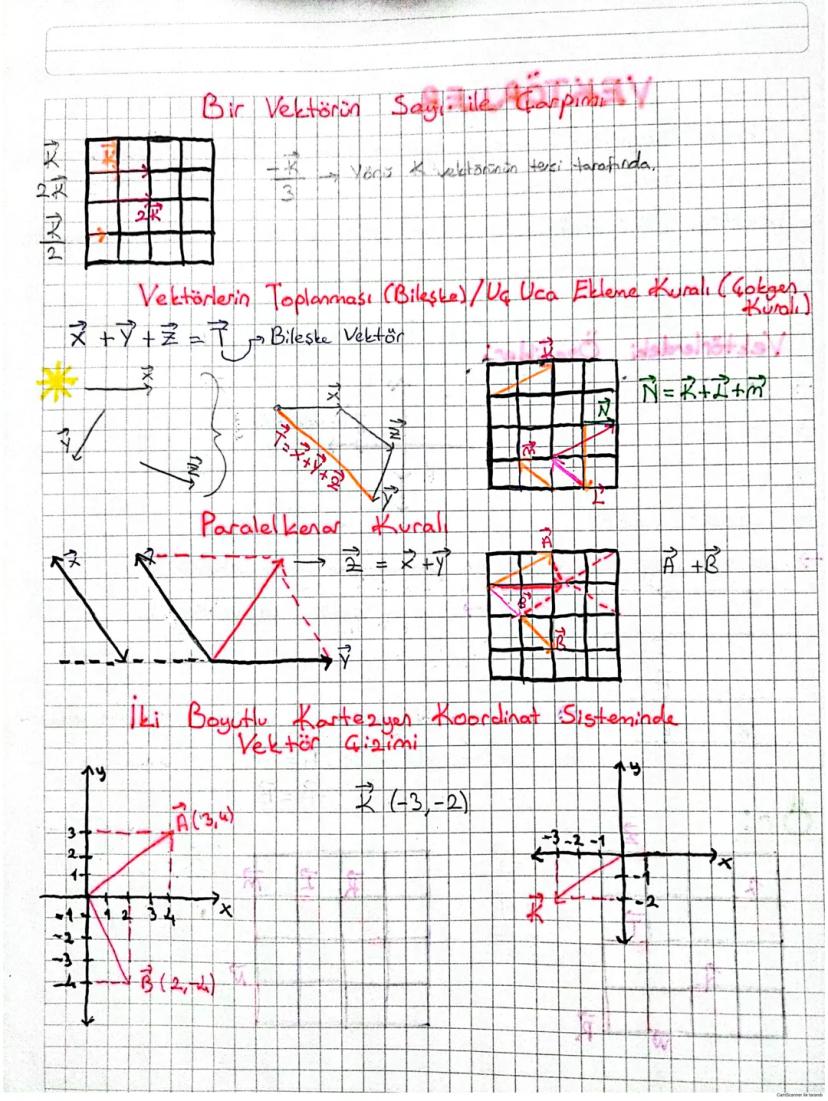 Bir Vektörün Sayı ile Çarpımı
K⃗
2K⃗
K⃗/2
K⃗
2K⃗
-K⃗/3 → Yönü K vektörünün tersi tarafında.
Vektörlerin Toplanması (Bileşke)/Uç Uca Ekleme Kuralı (Çokgen Kuralı)
X⃗ + Y⃗ + Z⃗ = T⃗ → Bileşke Vektör
X⃗
Y⃗
Z⃗
X⃗
Z⃗
Y⃗
T⃗ = X⃗+Y⃗+Z⃗
K⃗
N⃗
m⃗
L⃗
N⃗ = K⃗+L⃗+m⃗
Paralelkenar Kuralı
X⃗
X⃗
→ Z⃗ = X⃗+Y⃗
Y⃗
A⃗
B⃗
B⃗
A⃗ + B⃗
İki Boyutlu Kartezyen Koordinat Sisteminde
Vektör Çizimi
y
A⃗(3,4)
3
2
1
x
1 2 3 4
-1
-2
-3
-4
B⃗(2,-4)
K⃗ (-3,-2)
y
-3 -2 -1
x
-1
-2
K⃗
CamScanner ile tarandı